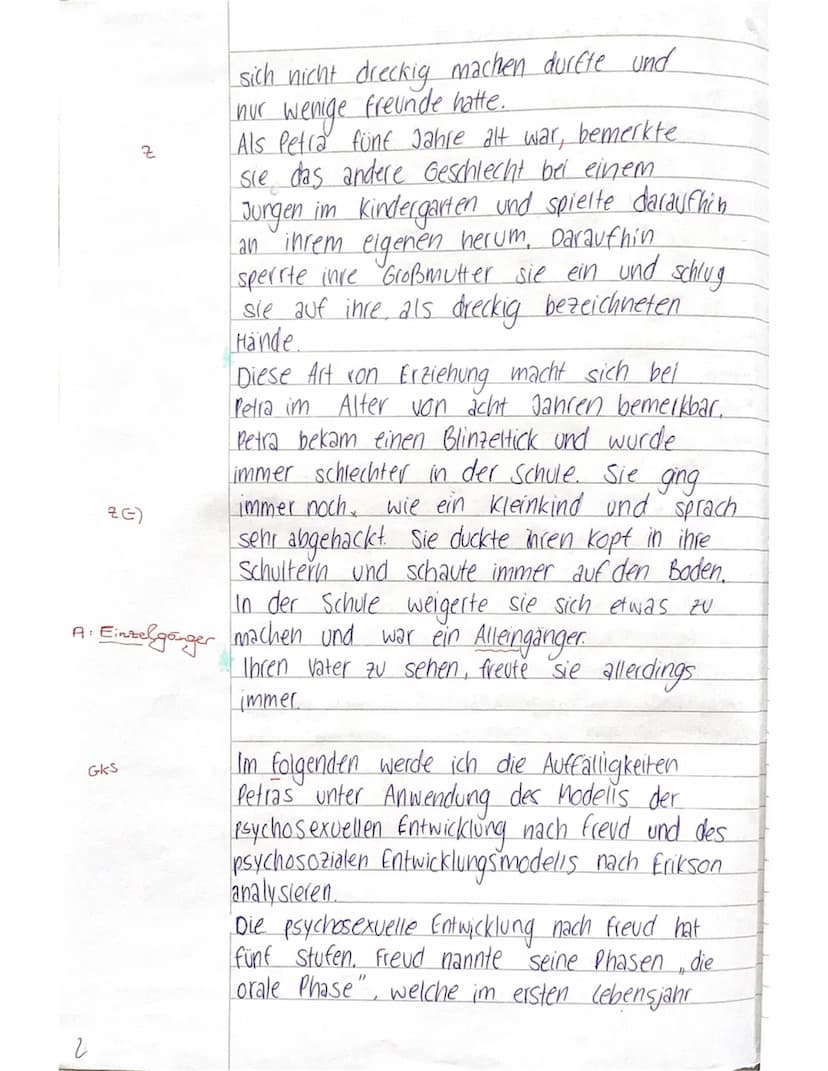 sich nicht dreckig machen durfte und
nur wenige Freunde hatte.
Z
Als Petra fünf Jahre alt war, bemerkte
sie das andere Geschlecht bei einem
Jungen im Kindergarten und spielte daraufhin
an ihrem eigenen herum. Daraufhin
sperrte ihre Großmutter sie ein und schlug
sie auf ihre als dreckig bezeichneten
Hände.
Diese Art von Erziehung macht sich bei
Petra im Alter von acht Jahren bemerkbar.
Petra bekam einen Blinzeltick und wurde
immer schlechter in der Schule. Sie ging
Z (-) immer noch, wie ein Kleinkind und sprach
sehr abgehackt. Sie duckte ihren Kopf in ihre
Schultern und schaute immer auf den Boden.
In der Schule weigerte sie sich etwas zu
A: Einzelgänger machen und war ein Alleingänger.
Ihren Vater zu sehen, freute sie allerdings
immer.
GkS Im folgenden werde ich die Auffälligkeiten
Petras unter Anwendung des Modells der
psychosexuellen Entwicklung nach Freud und des
psychosozialen Entwicklungsmodells nach Erikson
analysieren.
Die psychosexuelle Entwicklung nach Freud hat
fünf Stufen. Freud nannte seine Phasen „die
orale Phase", welche im ersten Lebensjahr
2